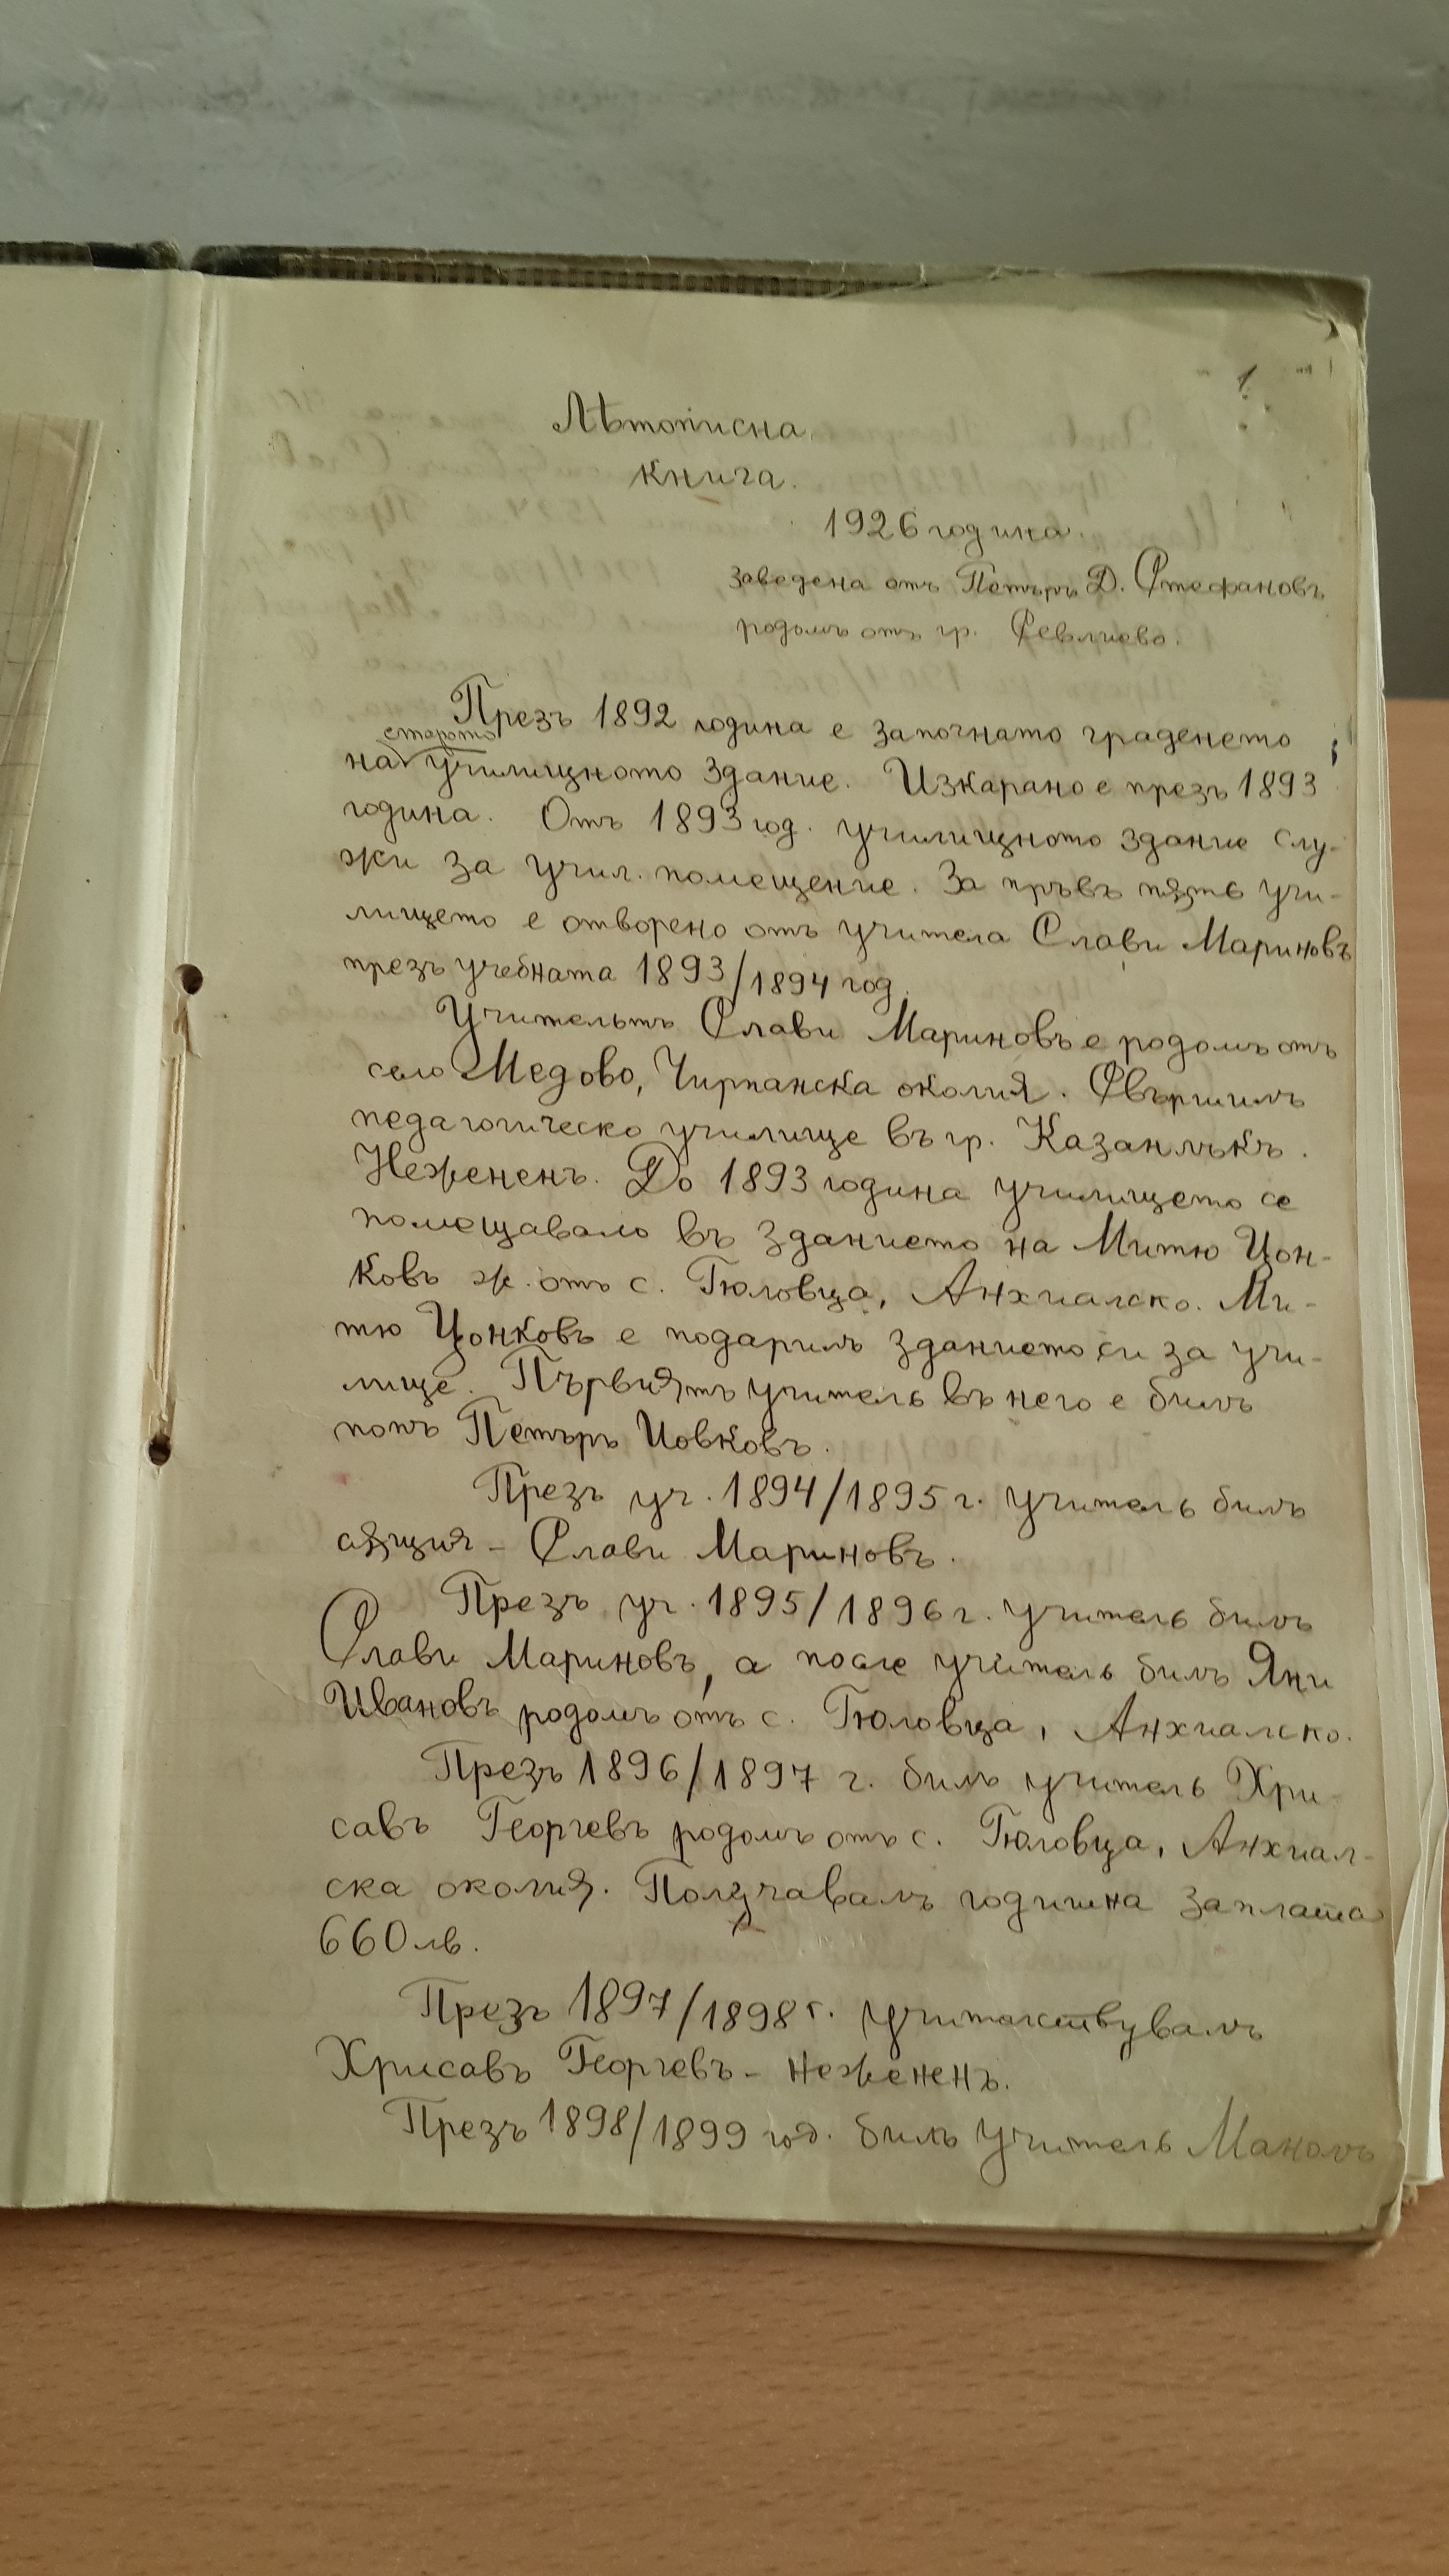 1
Лѣтописна
книга.
1926 година.
заведена отъ Петъръ Д. Стефановъ
родомъ отъ гр. Севлиево.
Презъ 1892 година е започнато граденето
старото
на училищното здание. Изкарано е презъ 1893
година. Отъ 1893 год. училищното здание слу-
жи за учил. помещение. За пръвъ пѫть учи-
лището е отворено отъ учителя Слави Мариновъ
презъ учебната 1893/1894 год.
Учительтъ Слави Мариновъ е родомъ отъ
село Медово, Чирпанска околия. Свършилъ
педагогическо училище въ гр. Казанлъкъ.
Нежененъ. До 1893 година училището се
помещавало въ зданието на Митю Цон-
ковъ ж. отъ с. Гюловца, Анхиалско. Ми-
тю Цонковъ е подарилъ зданието си за учи-
лище. Първиятъ учитель въ него е билъ
попъ Петъръ Йовковъ.
Презъ уч. 1894/1895 г. учитель билъ
сѫщия - Слави Мариновъ.
Презъ уч. 1895/1896 г. учитель билъ
Слави Мариновъ, а после учитель билъ Яни
Ивановъ родомъ отъ с. Гюловца, Анхиалско.
Презъ 1896/1897 г. билъ учитель Хри-
савъ Георгевъ родомъ отъ с. Гюловца, Анхиал-
ска околия. Получавалъ годишна заплата
660 лв.
Презъ 1897/1898 г. учителствувалъ
Хрисавъ Георгевъ - нежененъ.
Презъ 1898/1899 год. билъ учитель Маналъ